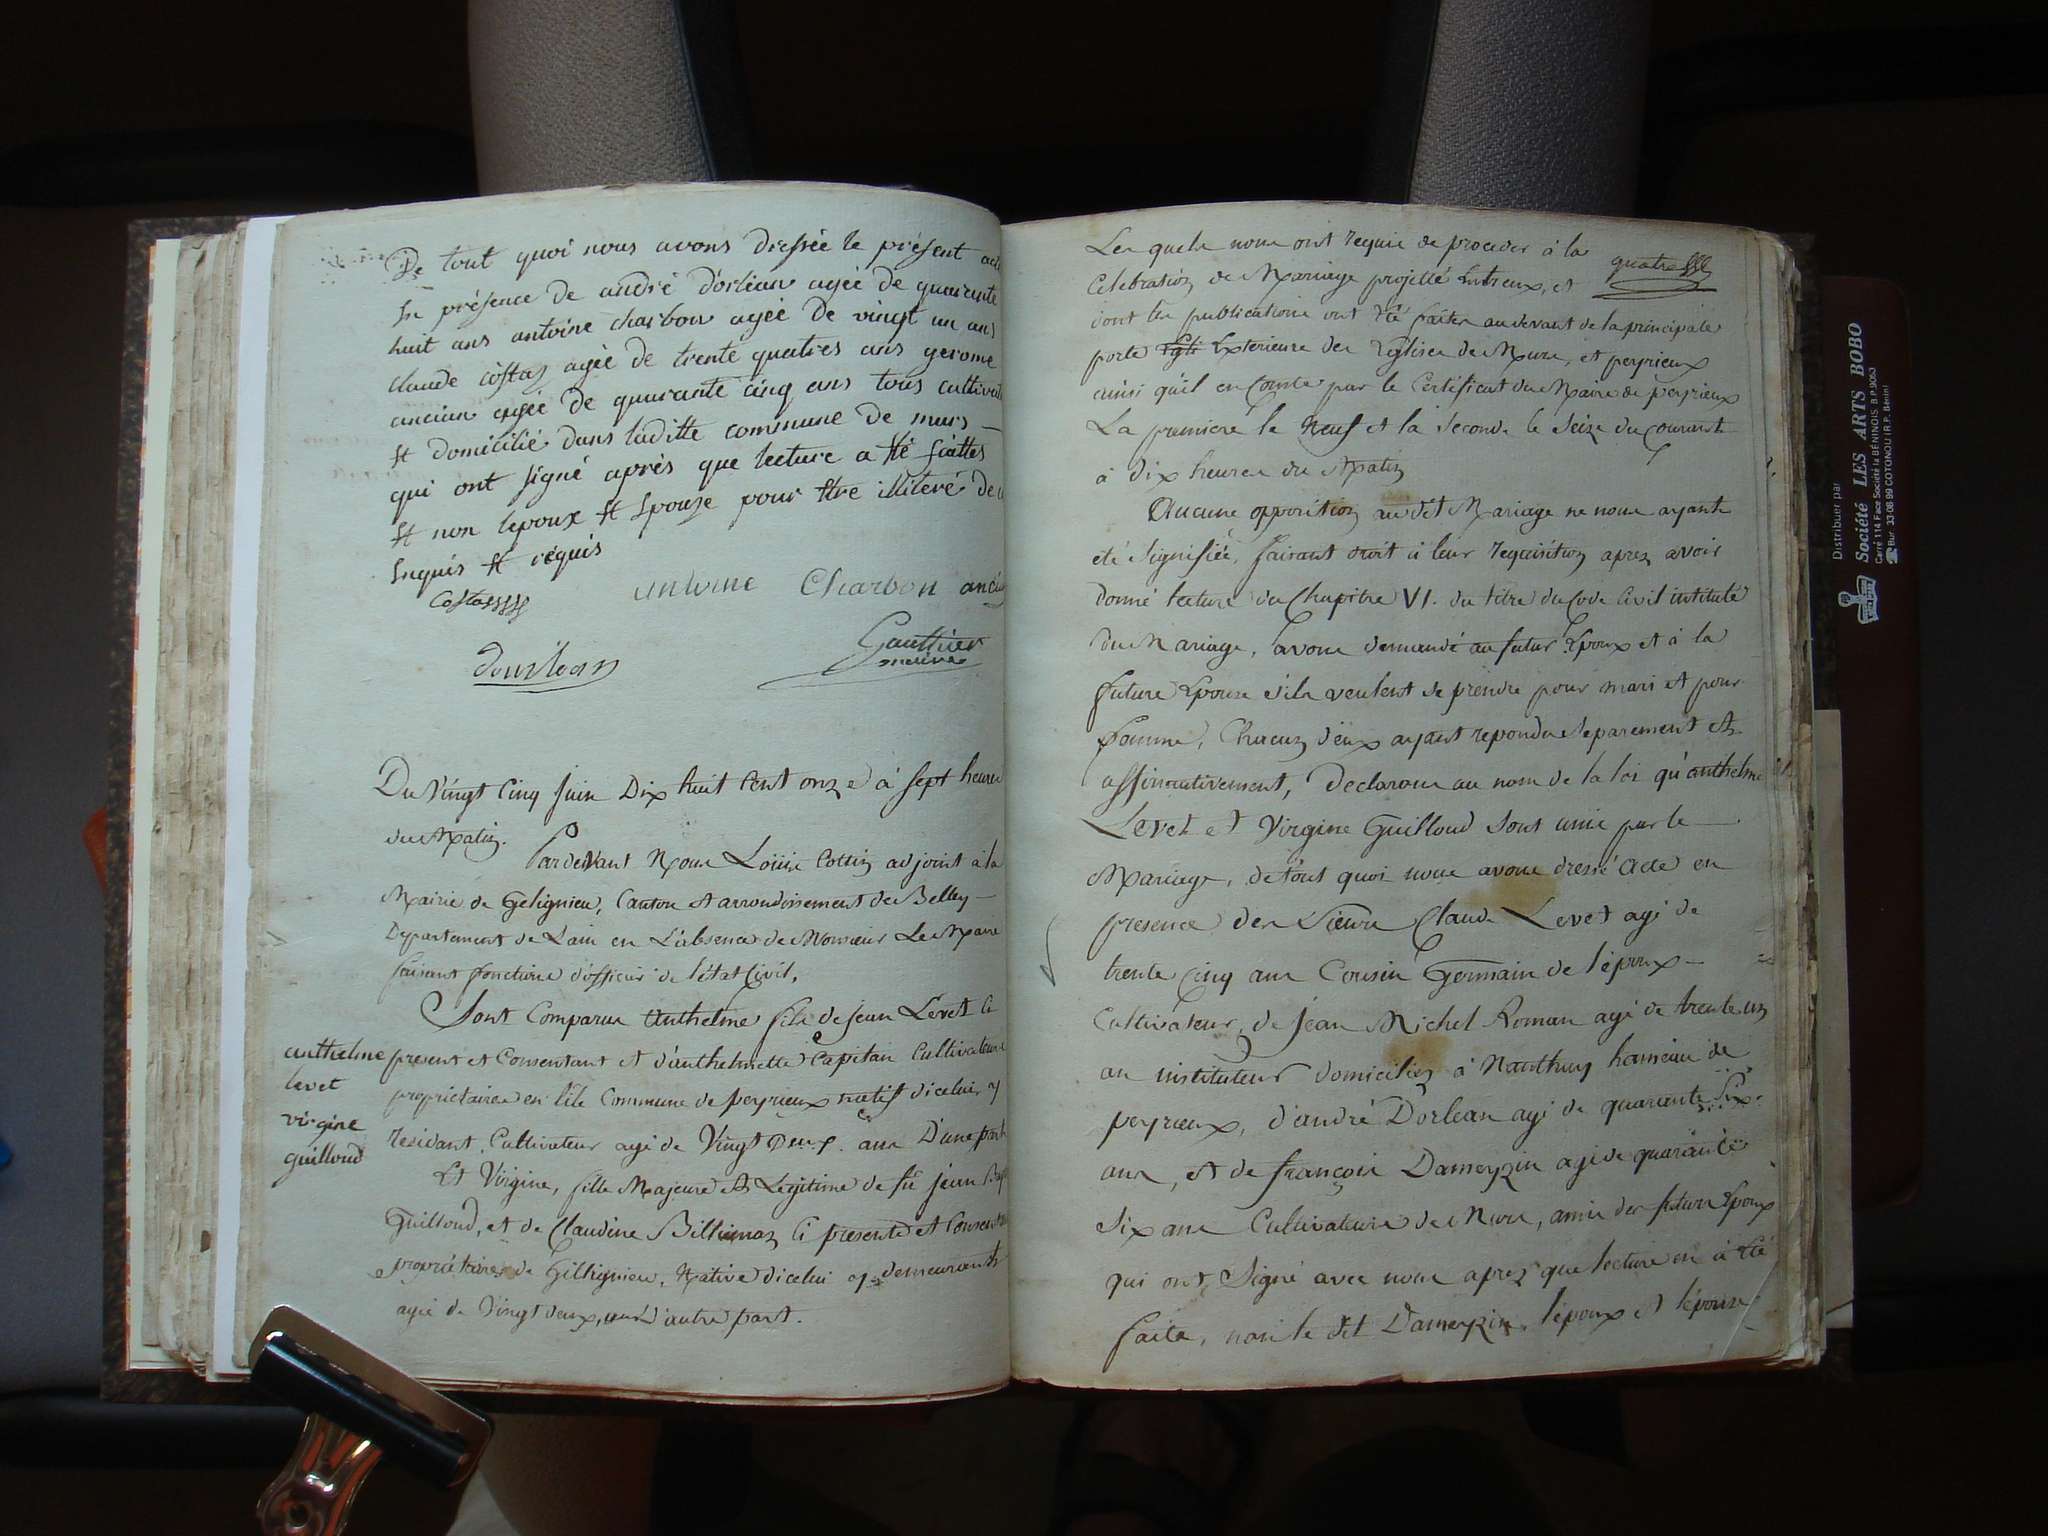 De tout quoi nous avons dressée le présent acte
En présence de andré d'orléan agée de quarante
huit ans antoine charbon agée de vingt un ans
claude costaz agée de trenté quatres ans gerome
ancian agée de quarante cinq ans tous cultivat
Et domicilié dans laditte commune de murs
qui ont signé après que lecture a été faittes
Et non lepoux Et Epouse pour Etre illiteré de
Enquis Et réquis
Costaz
antoine Charbon anci
Gauthier
maire
dourlean
Du Vingt Cinq Juin Dix huit Cent onze à sept heures
du Matin.
Pardevant Nous Loüis Cottin adjoint à la
Mairie de Gelignieu, Canton et arrondissement de Belley
Departement de Lain en L'absence de Monsieur Le Maire
faisant fonctions d'officier de l'état Civil,
Sont Comparus Anthelme fils de jean Levet Ci
present et Consentant et d'anthelmette Capitan Cultivateurs
proprietaires en l'ile Commune de peyrieux natif dicelui, y
residant, Cultivateur agé de Vingt Deux ans D'une part
Et Virgine, fille Majeure et Legitime de fû jean Bap
Guilloud, et de Claudine Billiemaz Ci presente et Consentan
propriétaires de Gillignieu, Native dicelui y demeurants
agée de Vingt deux, ans d'autre part.
anthelme
levet
virgine
guilloud
Les quels nous ont requis de proceder à la
Celebration de Mariage projetté Entreux, et
dont les publications ont été faites au devant de la principale
porte Egli Exterieure des Eglises de Murs, et peyrieux
ainsi qu'il en Conste par le Certificat du Maire de peyrieux
La premiere le Neuf et la seconde le Seize du Courant
à dix heures du Matin
quatre
Aucune opposition audit Mariage ne nous ayant
été Signifiée, faisant droit à leur requisition aprez avoir
donné lecture du Chapitre VI. du titre du Code Civil intitulé
Du Mariage, avons demandé au futur Epoux et à la
future Epouse s'ils veulent se prendre pour mari et pour
femme, Chacun d'eux ayant repondu Separement et
affirmativement, Declarons au nom de la loi qu'anthelme
Levet et Virgine Guilloud sont unis par le
Mariage, de tout quoi nous avons dressé Acte en
presence des Sieurs Claude Levet agé de
trente Cinq ans Cousin Germain de l'époux
Cultivateur, de jean Michel Roman agé de trente un
an instituteur domiciliez à Nanthuy hameau de
peyrieux, d'andré D'orlean agé de quarante Six
ans, et de françois Dameyzin agé de quarante
Six ans Cultivateurs de Murs, amis des futurs Epoux
qui ont Signé avec nous aprez que lecture en à été
faite, non le dit Dameyzin, l'époux et l'épouse
Distribuer par
Société LES ARTS BOBO
Carré 114 Face Société la BÉNINOIS. B.P. 9053
Bur. 33 08 99 COTONOU (R.P. Bénin)